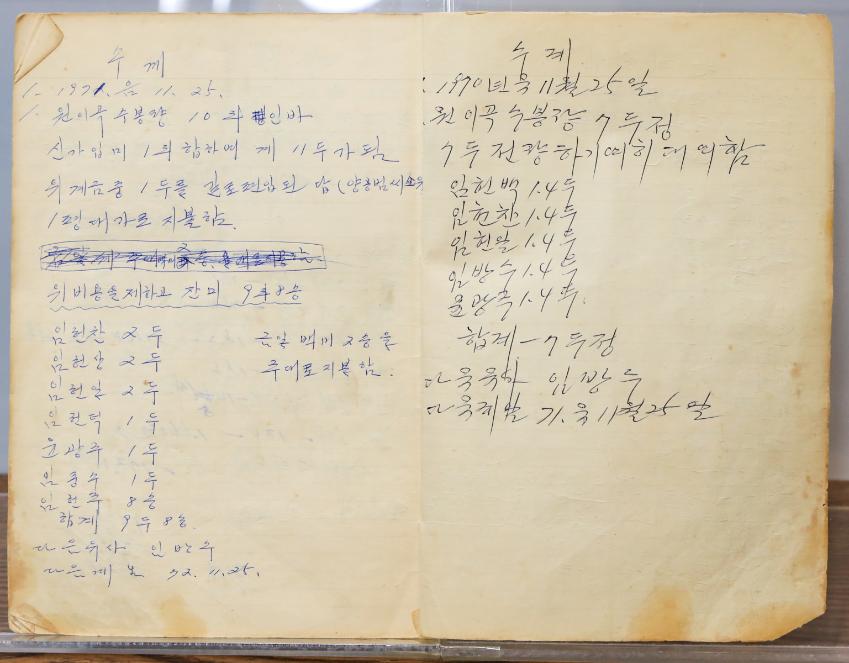 수 께
1. 1971. 음 11. 25.
1. 원이곡 수봉량 10두 인바
신가입미 1두 합하여 계 11두가 됨
위 계곡중 1두를 길로편입된 답(양
1평 대가로 지불함.
위 비용을 제하고 잔미 9두8승
임헌찬 2두
임헌상 2두
임헌일 2두
임헌덕 1두
윤광주 1두
임종수 1두
임헌주 8승
합계 9두8승.
다음유사 임방수
다음계일 72. 11. 25.
금일 백미 2승을
주대로 지불함.
수 계
1970년 음 11월 25일
원이곡 수봉량 7두정
7두 전량
임헌백 1.4두
임헌찬 1.4두
임헌일 1.4두
임방수 1.4두
윤광주 1.4두.
합계 - 7두정
다음유사 임방수
다음계일 71. 음 11월 25일